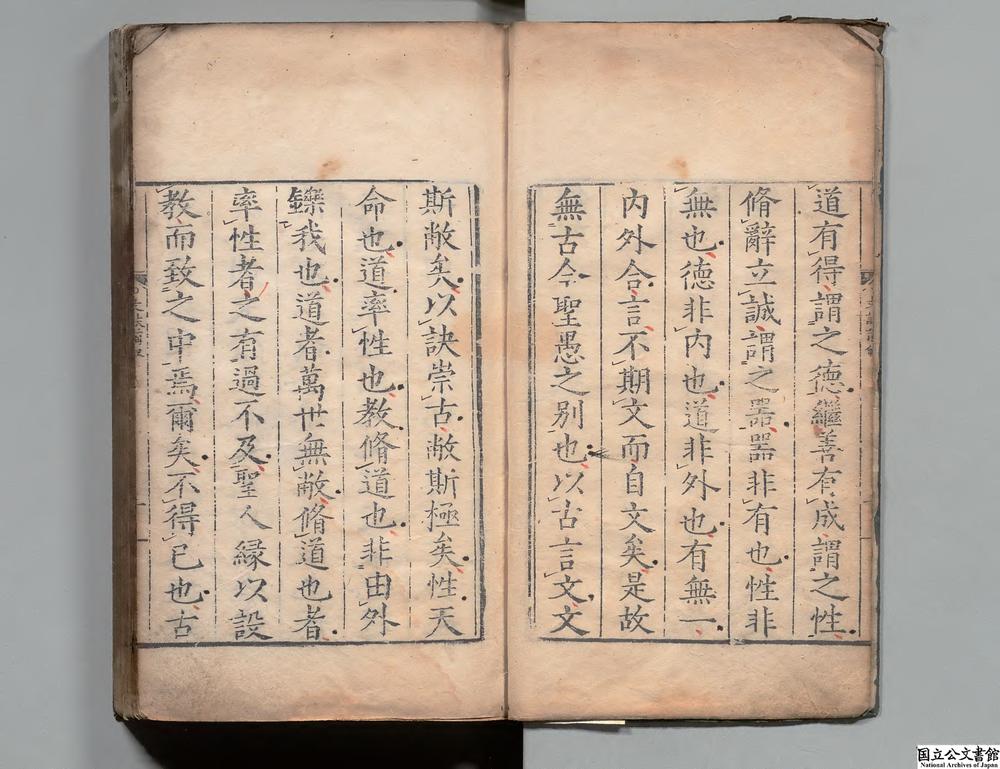 道有得謂之德繼善有成謂之性
脩辭立誠謂之器器非有也性非
無也德非内也道非外也有無一
内外合言不期文而自文矣是故
無古今聖愚之别也以古言文文
斯敝矣以訣崇古敝斯極矣性天
命也道率性也教脩道也非由外
鑠我也道者萬世無敝脩道也者
率性者之有過不及聖人緣以設
教而致之中焉爾矣不得已也古
国立公文書館
National Archives of Japan